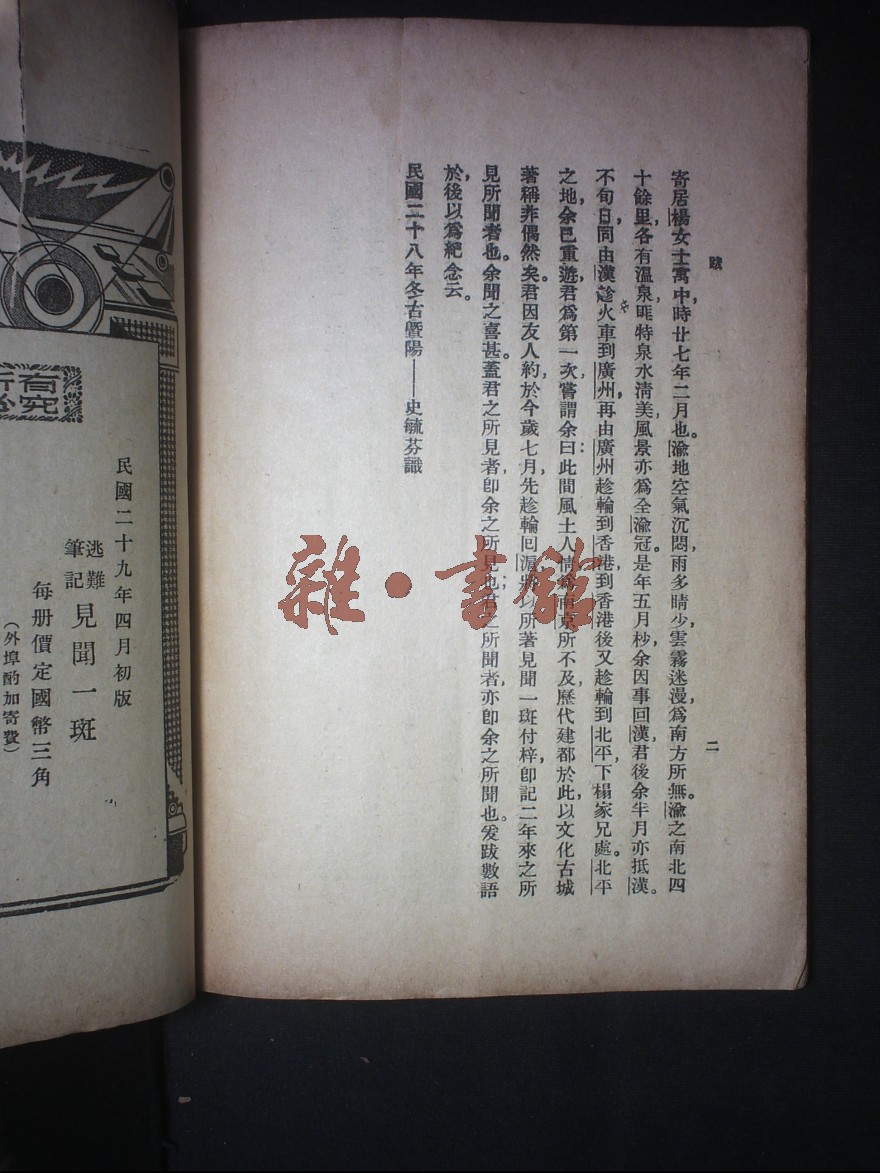 跋
二
寄居楊女士寓中，時廿七年二月也。渝地空氣沉悶，雨多晴少，雲霧迷漫，爲南方所無。渝之南北四
十餘里，各有溫泉，匪特泉水清美，風景亦爲全渝冠。是年五月杪，余因事回漢，君後余半月亦抵漢。
不旬日，同由漢趁火車到廣州，再由廣州趁輪到香港，到香港後又趁輪到北平，下榻家兄處。北平
之地，余已重遊，君爲第一次，嘗謂余曰：此間風土人情，爲南京所不及，歷代建都於此，以文化古城
著稱，非偶然矣。君因友人約，於今歲七月先趁輪回滬，將以所著見聞一斑付梓，卽記二年來之所
見所聞者也。余聞之喜甚。蓋君之所見者，卽余之所見也；君之所聞者，亦卽余之所聞也。爰跋數語
於後，以爲紀念云。
民國二十八年冬古暨陽——史毓芬識
雜·書館
有究
所必
民國二十九年四月初版
逃難筆記 見聞一斑
每册價定國幣三角
（外埠酌加寄費）